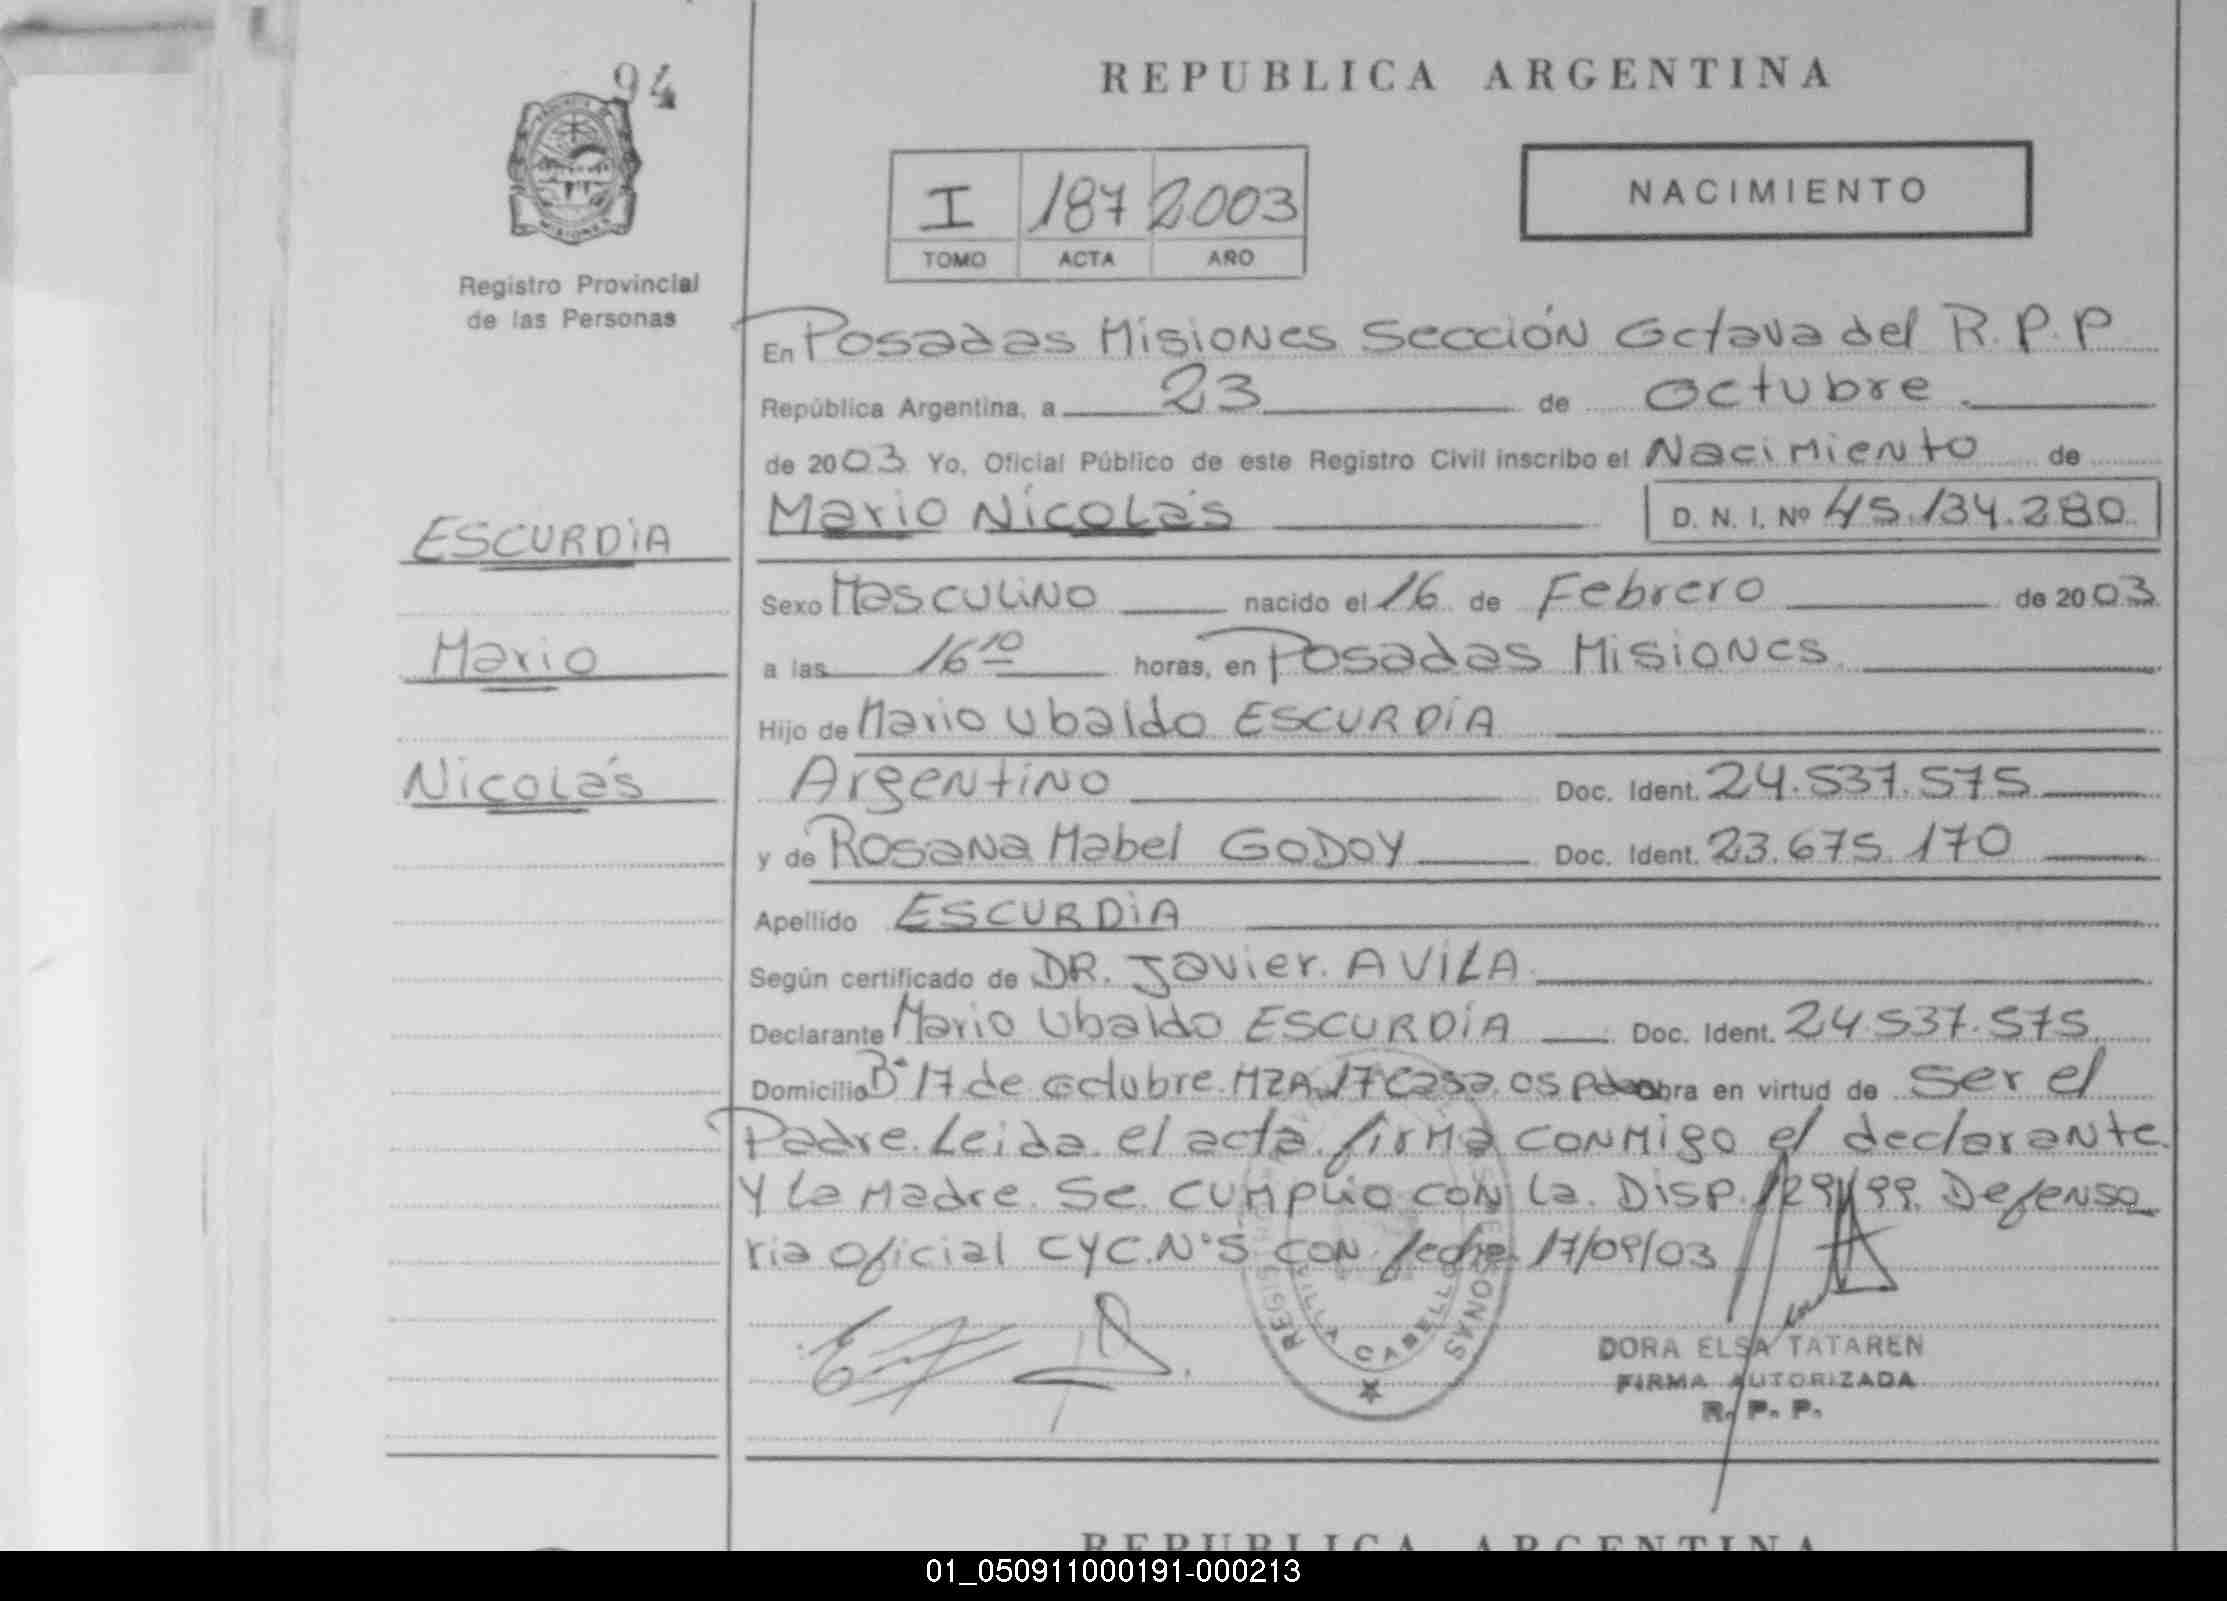 94
REPUBLICA ARGENTINA
I 187 2003
TOMO ACTA AÑO
NACIMIENTO
Registro Provincial
de las Personas
En Posadas Misiones Sección Octava del R.P.P
República Argentina, a 23 de Octubre
de 2003 Yo, Oficial Público de este Registro Civil inscribo el Nacimiento de
Mario Nicolás D. N. I. Nº 45.134.280
ESCURDiA
Sexo Masculino nacido el 16 de Febrero de 2003
Mario
a las 16 10 horas, en Posadas Misiones
Hijo de Mario Ubaldo ESCURDÍA
Nicolás
Argentino Doc. Ident. 24.537.575
y de Rosana Mabel GODOY Doc. Ident. 23.675.170
Apellido ESCURDiA
Según certificado de DR. Javier AVILA
Declarante Mario Ubaldo ESCURDÍA Doc. Ident. 24.537.575
Domicilio Bº 17 de octubre MZA 17 casa 05 obra en virtud de ser el
Padre. Leida el acta firma conmigo el declarante
y la Madre. Se cumplio con la Disp. 129/99. Defenso
ria oficial CYC.Nº5 con fecha 17/09/03
REGIS VILLA CABELLO PERSONAS
DORA ELSA TATAREN
FIRMA AUTORIZADA
R. P. P.
REPUBLICA ARGENTINA
01_050911000191-000213